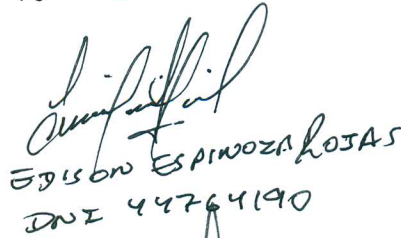 EDISON ESPINOZA ROJAS
DNI 44764190